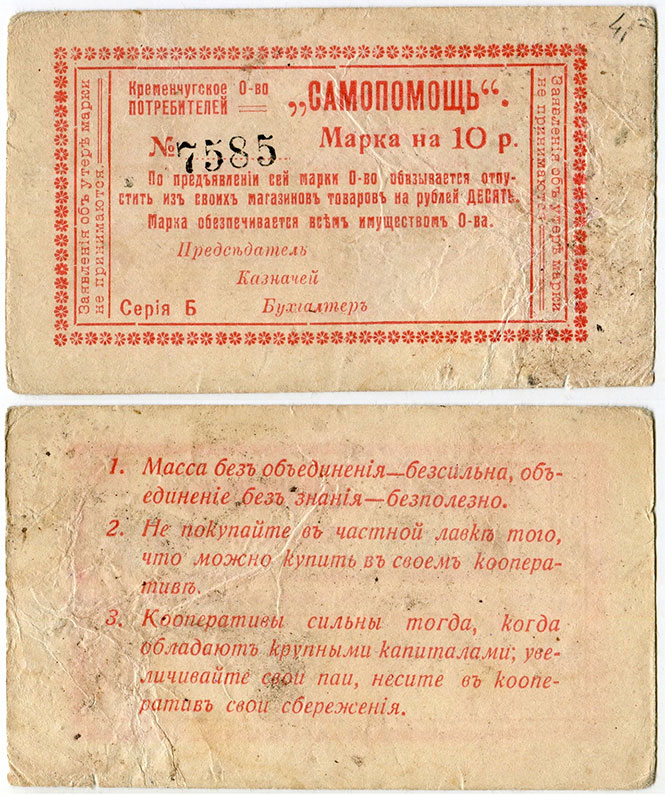 4,=
Кременчугское О-во
ПОТРЕБИТЕЛЕЙ
„САМОПОМОЩЬ“.
№ 7585
Марка на 10 р.
По предъявленіи сей марки О-во обязывается отпу-
стить из своих магазинов товаров на рублей ДЕСЯТЬ.
Марка обезпечивается всѣм имуществом О-ва.
Предсѣдатель
Казначей
Серія Б
Бухгалтеръ
Заявленія объ утерѣ марки
не принимаются.
Заявленія объ утерѣ марки
не принимаются.
1. Масса безъ объединенія—безсильна, объ-
единеніе безъ знанія—безполезно.
2. Не покупайте въ частной лавкѣ того,
что можно купить въ своемъ коопера-
тивѣ.
3. Кооперативы сильны тогда, когда
обладаютъ крупными капиталами; уве-
личивайте свои паи, несите въ коопе-
ративъ свои сбереженія.